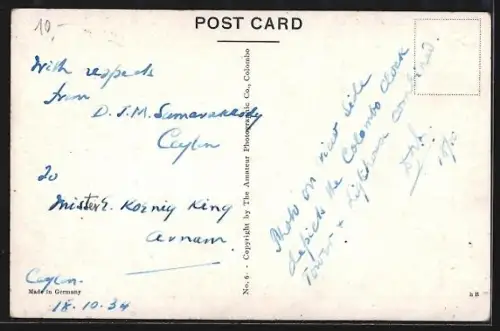 10,
POST CARD
With respects
from
D. J. M. Samarakkody
Ceylon
To
Mister E. Koenig King
Annam.
Ceylon.
Made in Germany
18.10.34
No. 6. - Copyright by The Amateur Photographic Co., Colombo
Photo on view side
depicts the Colombo Clock
Tower + Lighthouse combined.
18/10